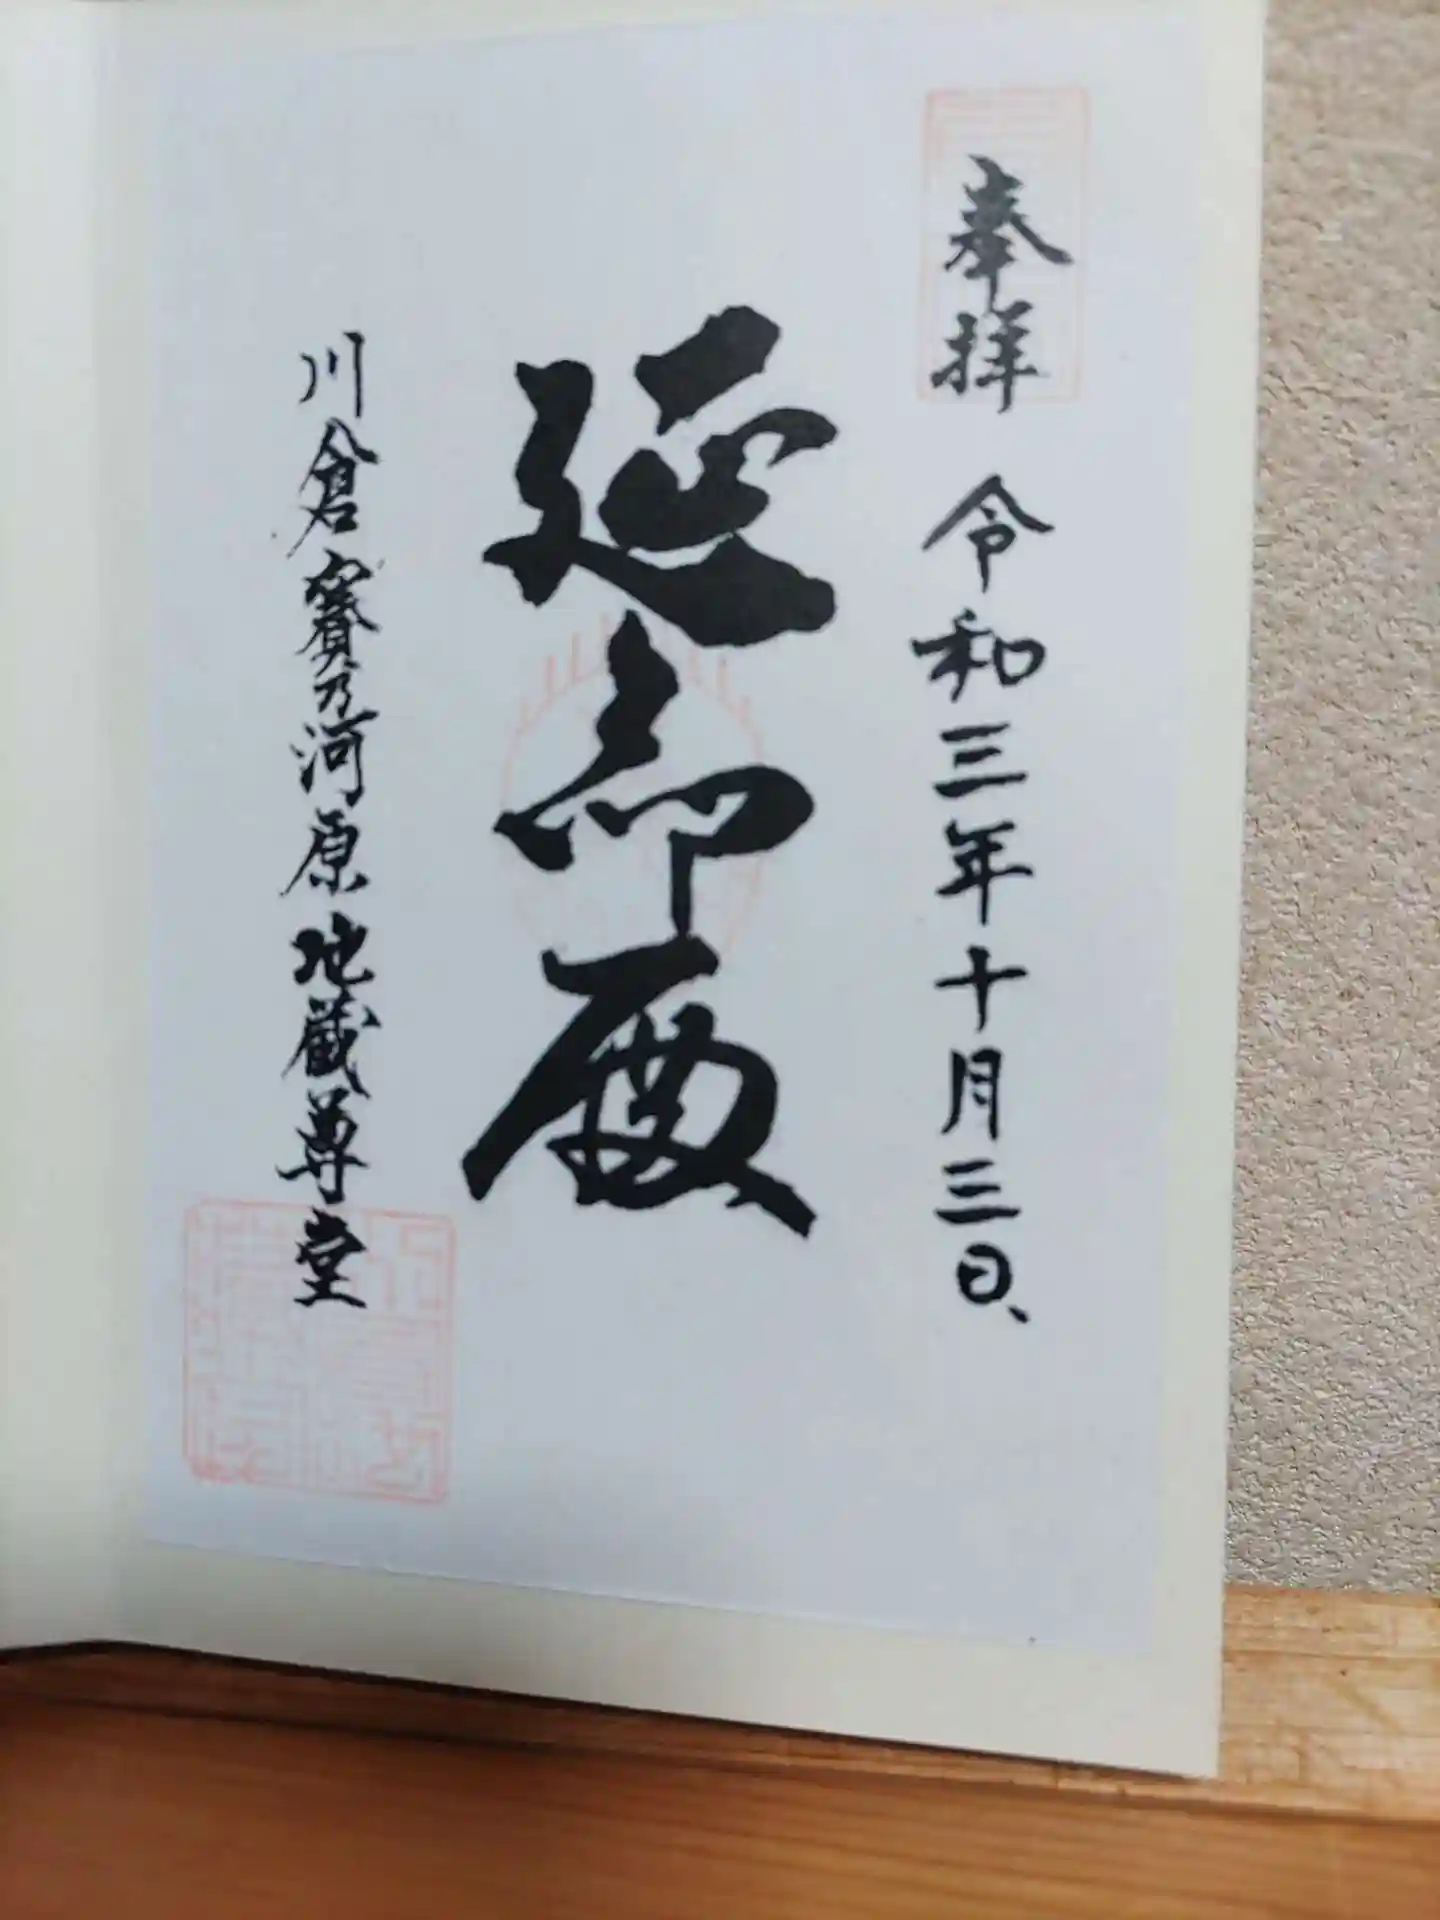 奉拝
令和三年十月三日、
延命殿
川倉賽乃河原地蔵尊堂